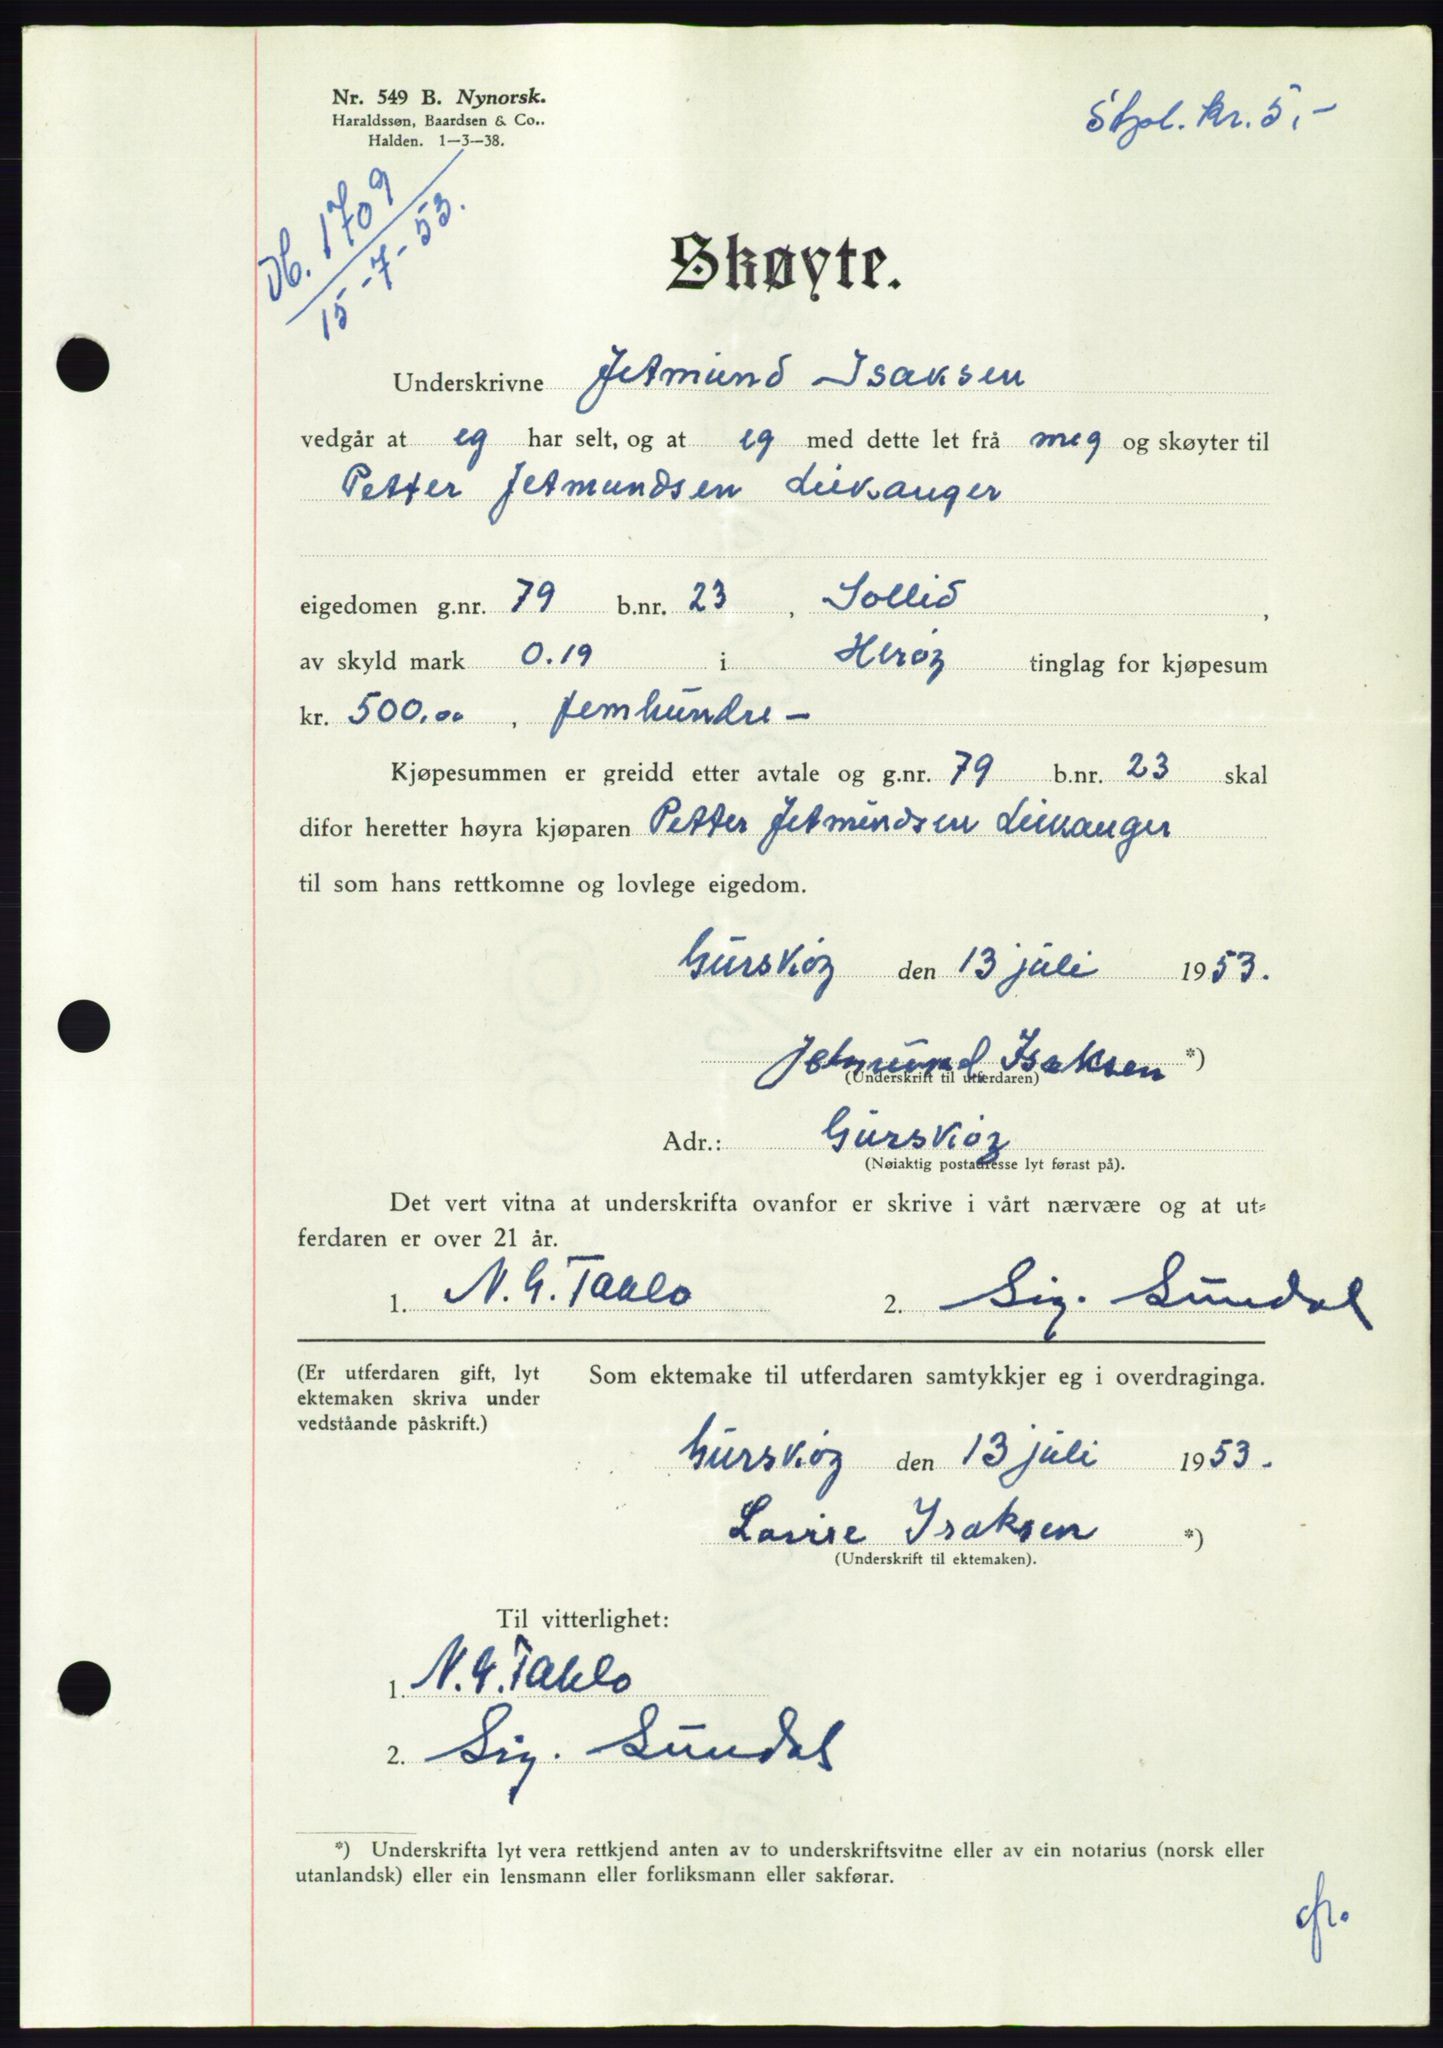 Nr. 549 B. Nynorsk.
Haraldssøn, Baardsen & Co..
Halden. 1—3—38.
Stpl. kr. 5,-
Db. 1709
15-7-53.
Skøyte.
Underskrivne Jetmund Isaksen
vedgår at eg har selt, og at eg med dette let frå meg og skøyter til
Petter Jetmundsen Leikanger
eigedomen g.nr. 79 b.nr. 23, Sollid,
av skyld mark 0.19 i Herøy tinglag for kjøpesum
kr. 500,00, femhundre —
Kjøpesummen er greidd etter avtale og g.nr. 79 b.nr. 23 skal
difor heretter høyra kjøparen Petter Jetmundsen Leikanger
til som hans rettkomne og lovlege eigedom.
Gurskøy den 13 juli 1953.
Jetmund Isaksen *)
(Underskrift til utferdaren)
Adr.: Gurskøy
(Nøiaktig postadresse lyt førast på).
Det vert vitna at underskrifta ovanfor er skrive i vårt nærvære og at ut-
ferdaren er over 21 år.
1. N. G. Taklo 2. Sig. Sundal
(Er utferdaren gift, lyt Som ektemake til utferdaren samtykkjer eg i overdraginga.
ektemaken skriva under
vedståande påskrift.)
Gurskøy den 13 juli 1953.
Lovise Isaksen *)
(Underskrift til ektemaken).
Til vitterlighet:
1. N. G. Taklo
2. Sig. Sundal
*) Underskrifta lyt vera rettkjend anten av to underskriftsvitne eller av ein notarius (norsk eller
utanlandsk) eller ein lensmann eller forliksmann eller sakførar.